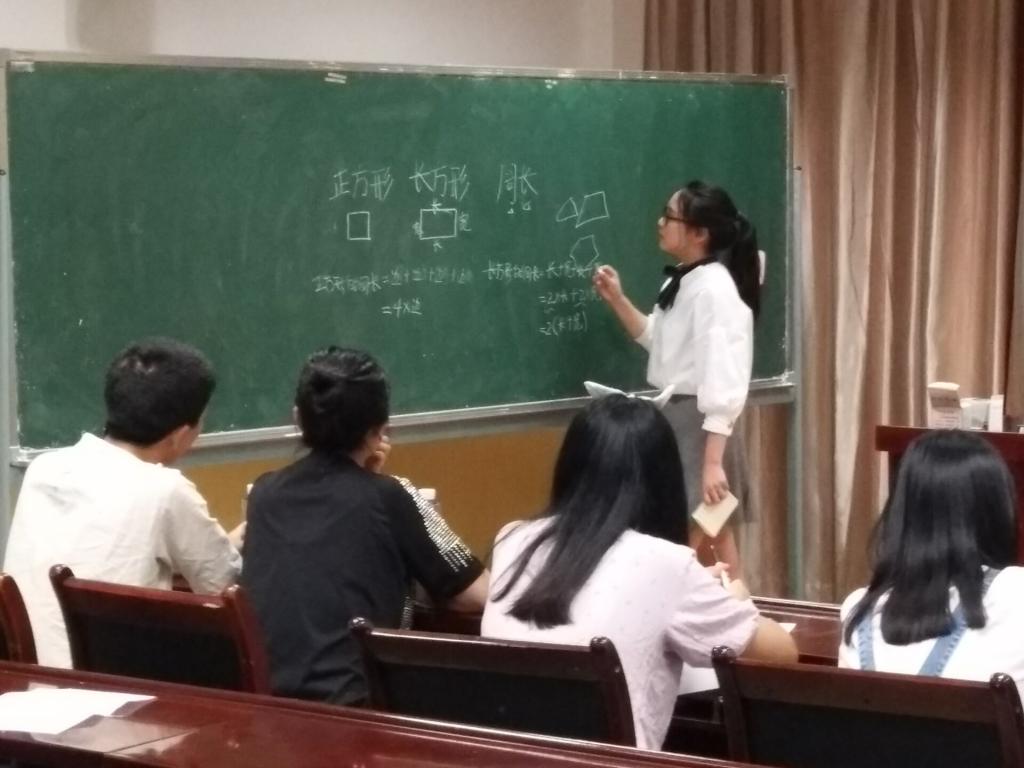 正方形 长方形 周长
长
宽 宽
长
正方形的周长=边+边+边+边 长方形的周长=长+宽+长
=4×边 =2×长+2
=2(长+宽)